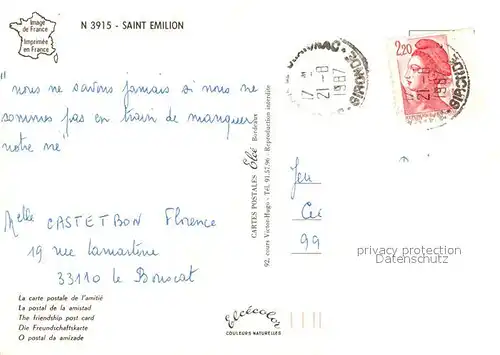 Image
de France
Imprimée
en France
N 3915 - SAINT EMILION
"nous ne savons jamais si nous ne
sommes pas en train de manquer
notre vie
Melle CASTETBON Florence
19 rue Lamartine
33110 le Bouscat
La carte postale de l'amitié
La postal de la amistad
The friendship post card
Die Freundschaftskarte
O postal da amizade
CARTES POSTALES Elcé Bordeaux
92, cours Victor-Hugo - Tél. 91.57.96 - Reproduction interdite
Elcécolor
COULEURS NATURELLES
17 H
21-8
1987
GIRONDE
2,20
21-8
1987
GIRONDE
privacy protection
Datenschutz